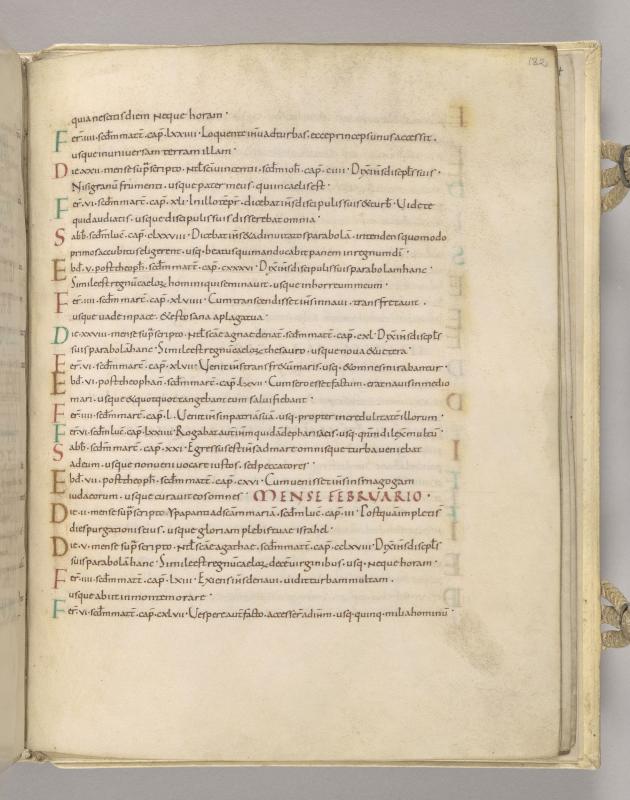 182
quia nescitis diem neque horam ·
Fer̄ · iiii · scd̄m matt̄ · cap̄ · lxxiiii · Loquente ih̄u ad turbas · ecce princeps unus accessit ·
usque in universam terram illam ·
Die · xxii · mense sup̄scripto · Nt̄l sc̄i vincentii · scd̄m ioh̄ · cap̄ · ciiii · Dix̄ ih̄s discipl̄s suis ·
Nisi granū frumenti · usque pater meus · qui in caelis est ·
Fer̄ · vi · scd̄m marc̄ · cap̄ · xli · In illo tēpr̄ · dicebat ih̄s discipulis suis & turb̄ · Videte
quid audiatis · usque discipulis suis disserebat omnia ·
Sabb̄ · scd̄m luc̄ · cap̄ · clxxviii · Dicebat ih̄s & ad invitatos parabolā · intendens quomodo
primos accubitus eligerent · usq · beatus qui manducabit panem in regnum dī ·
Ebd̄ · v · post theoph̄ · scd̄m matt̄ · cap̄ · cxxxvi · Dix̄ ih̄s discipulis suis parabolam hanc ·
Simile est regnū caeloꝝ homini qui seminavit · usque in horreum meum ·
Fer̄ · iiii · scd̄m marc̄ · cap̄ · xlviii · Cum transcendisset ih̄s in navi · trans fretū aut ·
usque vade in pace · & esto sana a plaga tua ·
Die · xxiii · mense sup̄scripto · Nt̄l sc̄ae agnae de nat̄ · scd̄m matt̄ · cap̄ · cxl · Dix̄ ih̄s discipl̄s
suis parabolā hanc · Simile est regnū caeloꝝ thesauro · usque nova & vetera ·
Fer̄ · vi · scd̄m marc̄ · cap̄ · xlvii · Venit ih̄s trans fr&ū maris · usq · & omnes mirabantur ·
Ebd̄ · vi · post theophan̄ · scd̄m matt̄ · cap̄ · lxvii · Cum sero esset factum · erat navis in medio
mari · usque & quotquot tangebant eum salvi fiebant ·
Fer̄ · iiii · scd̄m marc̄ · cap̄ · l · Venit ih̄s in patriā suā · usq · propter incredulitatē illorum ·
Fer̄ · vi · scd̄m luc̄ · cap̄ · lxxiiii · Rogabat aut̄ ih̄m quidā de pharisaeis · usq · qm̄ dilex̄ multū ·
Sabb̄ · scd̄m marc̄ · cap̄ · xxi · Egressus est ih̄s ad mare omnisque turba veniebat
ad eum · usque non veni vocare iustos · sed peccatores ·
Ebd̄ · vii · post theoph̄ · scd̄m matt̄ · cap̄ · cxvi · Cum venisset ih̄s in sinagogam
iudaeorum · usque curavit eos omnes · MENSE FEBRUARIO ·
Die · ii · mense sup̄scripto · Ypapanti ad sc̄am mariā · scd̄m luc̄ · cap̄ · iii · Postquā impleti s̄
dies purgationis eius · usque gloriam plebis tuae israhel ·
Die · v · mense sup̄scripto · Nt̄l sc̄ae agathae · scd̄m matt̄ · cap̄ · cclxviii · Dix̄ ih̄s discipl̄s
suis parabolā hanc · Simile est regnū caeloꝝ decē virginibus · usq · Neque horam ·
Fer̄ · iiii · scd̄m marc̄ · cap̄ · lxiii · Exiens ih̄s de navi · vidit turbam multam ·
usque abiit in montem orare ·
Fer̄ · vi · scd̄m matt̄ · cap̄ · cxlvii · Vespere aut̄ facto · accesser̄ ad ih̄m · usq · quinq · milia hominū ·